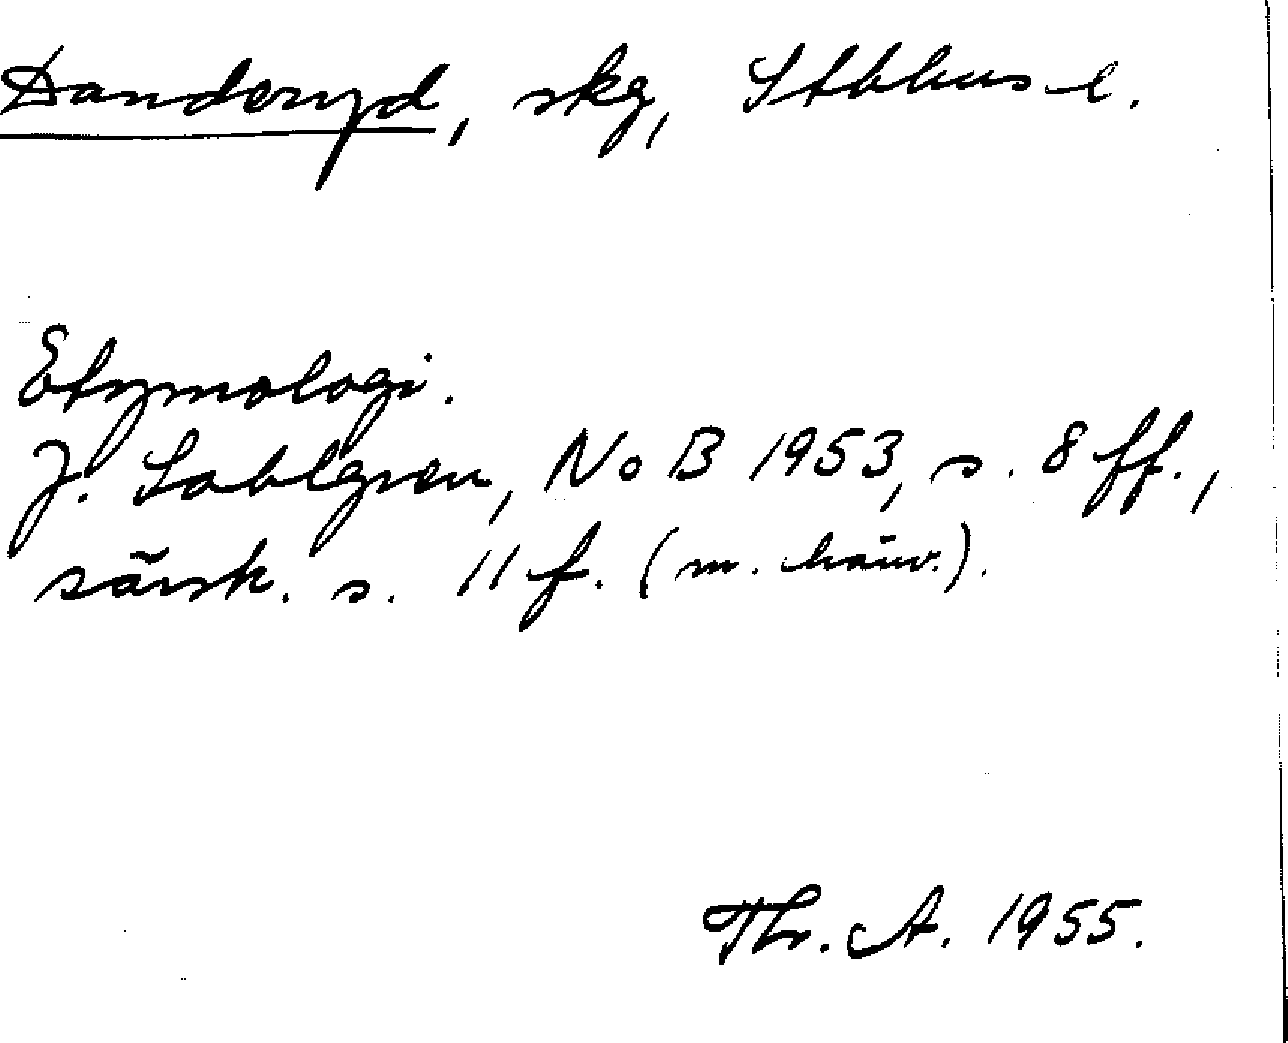 Danderyd, skg, Sthlms l.
Etymologi.
J. Sahlgren, NoB 1953, s. 8 ff.,
särsk. s. 11 f. (m. hänv.).
Th. A. 1955.